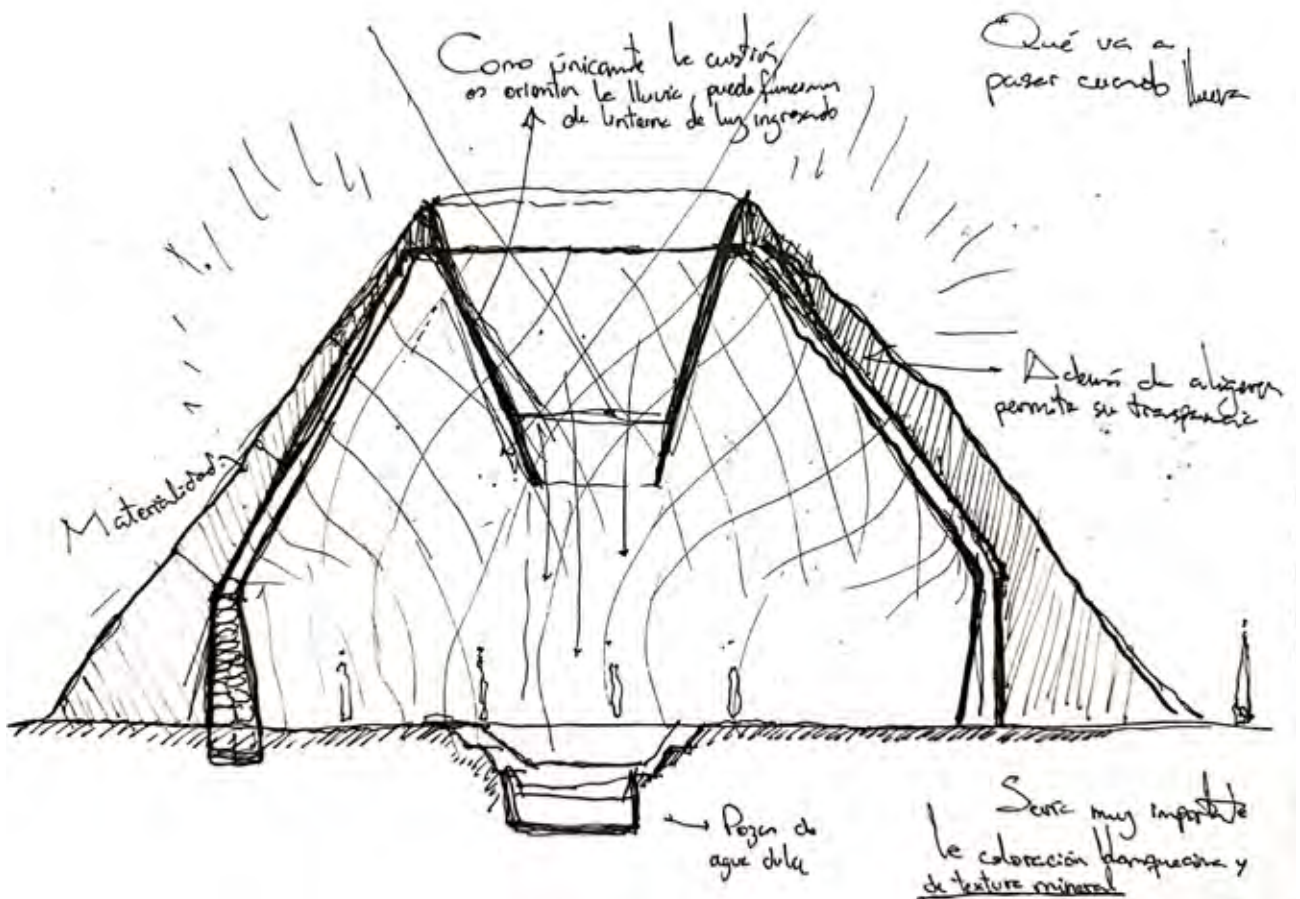 Como únicamente la cuestión
es orientar la lluvia, puede funcionar
de linterna de luz ingresando
Qué va a
pasar cuando llueva
Además de aligerar
permite su transparencia
Materialidad:
Pozas de
agua dulce
Sería muy importante
la coloración blanquecina y
de textura mineral